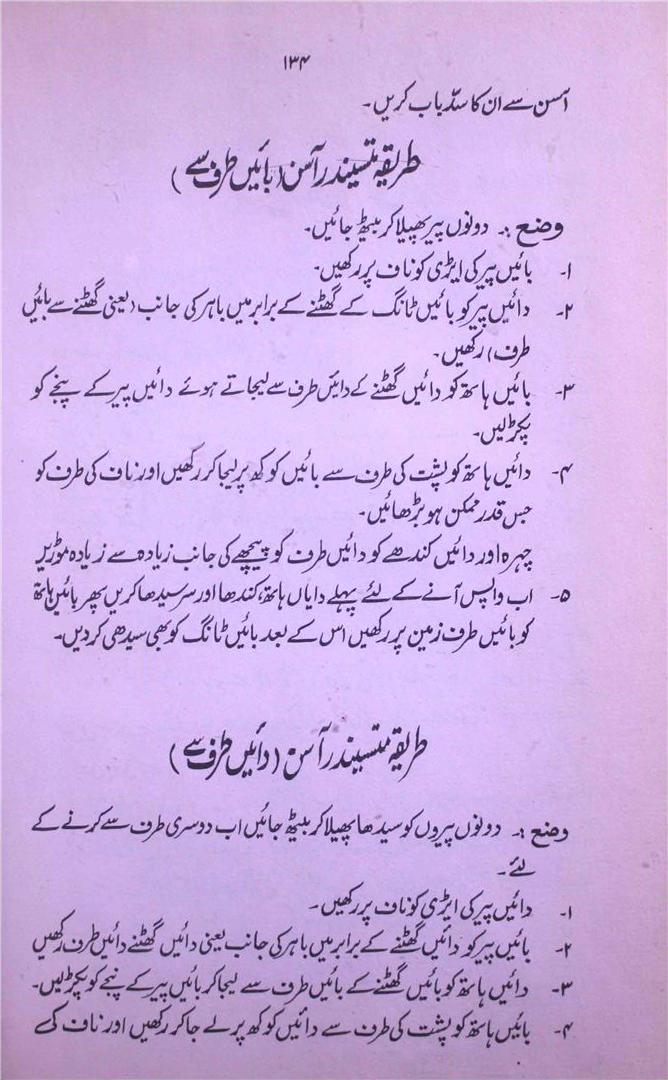 ۱۳۴
آسن سے ان کا سدّ باب کریں۔
طریقہ متسیندر آسن (بائیں طرف سے)
وضع :۔ دونوں پیر پھیلا کر بیٹھ جائیں۔
۱۔ بائیں پیر کی ایڑی کو ناف پر رکھیں۔
۲۔ دائیں پیر کو بائیں ٹانگ کے گھٹنے کے برابر میں باہر کی جانب (یعنی گھٹنے سے بائیں
طرف) رکھیں۔
۳۔ بائیں ہاتھ کو دائیں گھٹنے کے دائیں طرف سے لیجاتے ہوئے دائیں پیر کے پنجے کو
پکڑ لیں۔
۴۔ دائیں ہاتھ کو پشت کی طرف سے بائیں کوکھ پر لیجا کر رکھیں اور ناف کی طرف کو
جس قدر ممکن ہو بڑھائیں۔
چہرہ اور دائیں کندھے کو دائیں طرف کو پیچھے کی جانب زیادہ سے زیادہ موڑیں
۵۔ اب واپس آنے کے لئے پہلے دایاں ہاتھ، کندھا اور سر سیدھا کریں پھر بائیں ہاتھ
کو بائیں طرف زمین پر رکھیں اس کے بعد بائیں ٹانگ کو بھی سیدھی کر دیں۔
طریقہ متسیندر آسن (دائیں طرف سے)
وضع :۔ دونوں پیروں کو سیدھا پھیلا کر بیٹھ جائیں اب دوسری طرف سے کرنے کے
لئے۔
۱۔ دائیں پیر کی ایڑی کو ناف پر رکھیں۔
۲۔ بائیں پیر کو دائیں گھٹنے کے برابر میں باہر کی جانب یعنی دائیں گھٹنے دائیں طرف رکھیں
۳۔ دائیں ہاتھ کو بائیں گھٹنے کے بائیں طرف سے لیجا کر بائیں پیر کے پنجے کو پکڑ لیں۔
۴۔ بائیں ہاتھ کو پشت کی طرف سے دائیں کوکھ پر لے جا کر رکھیں اور ناف کے